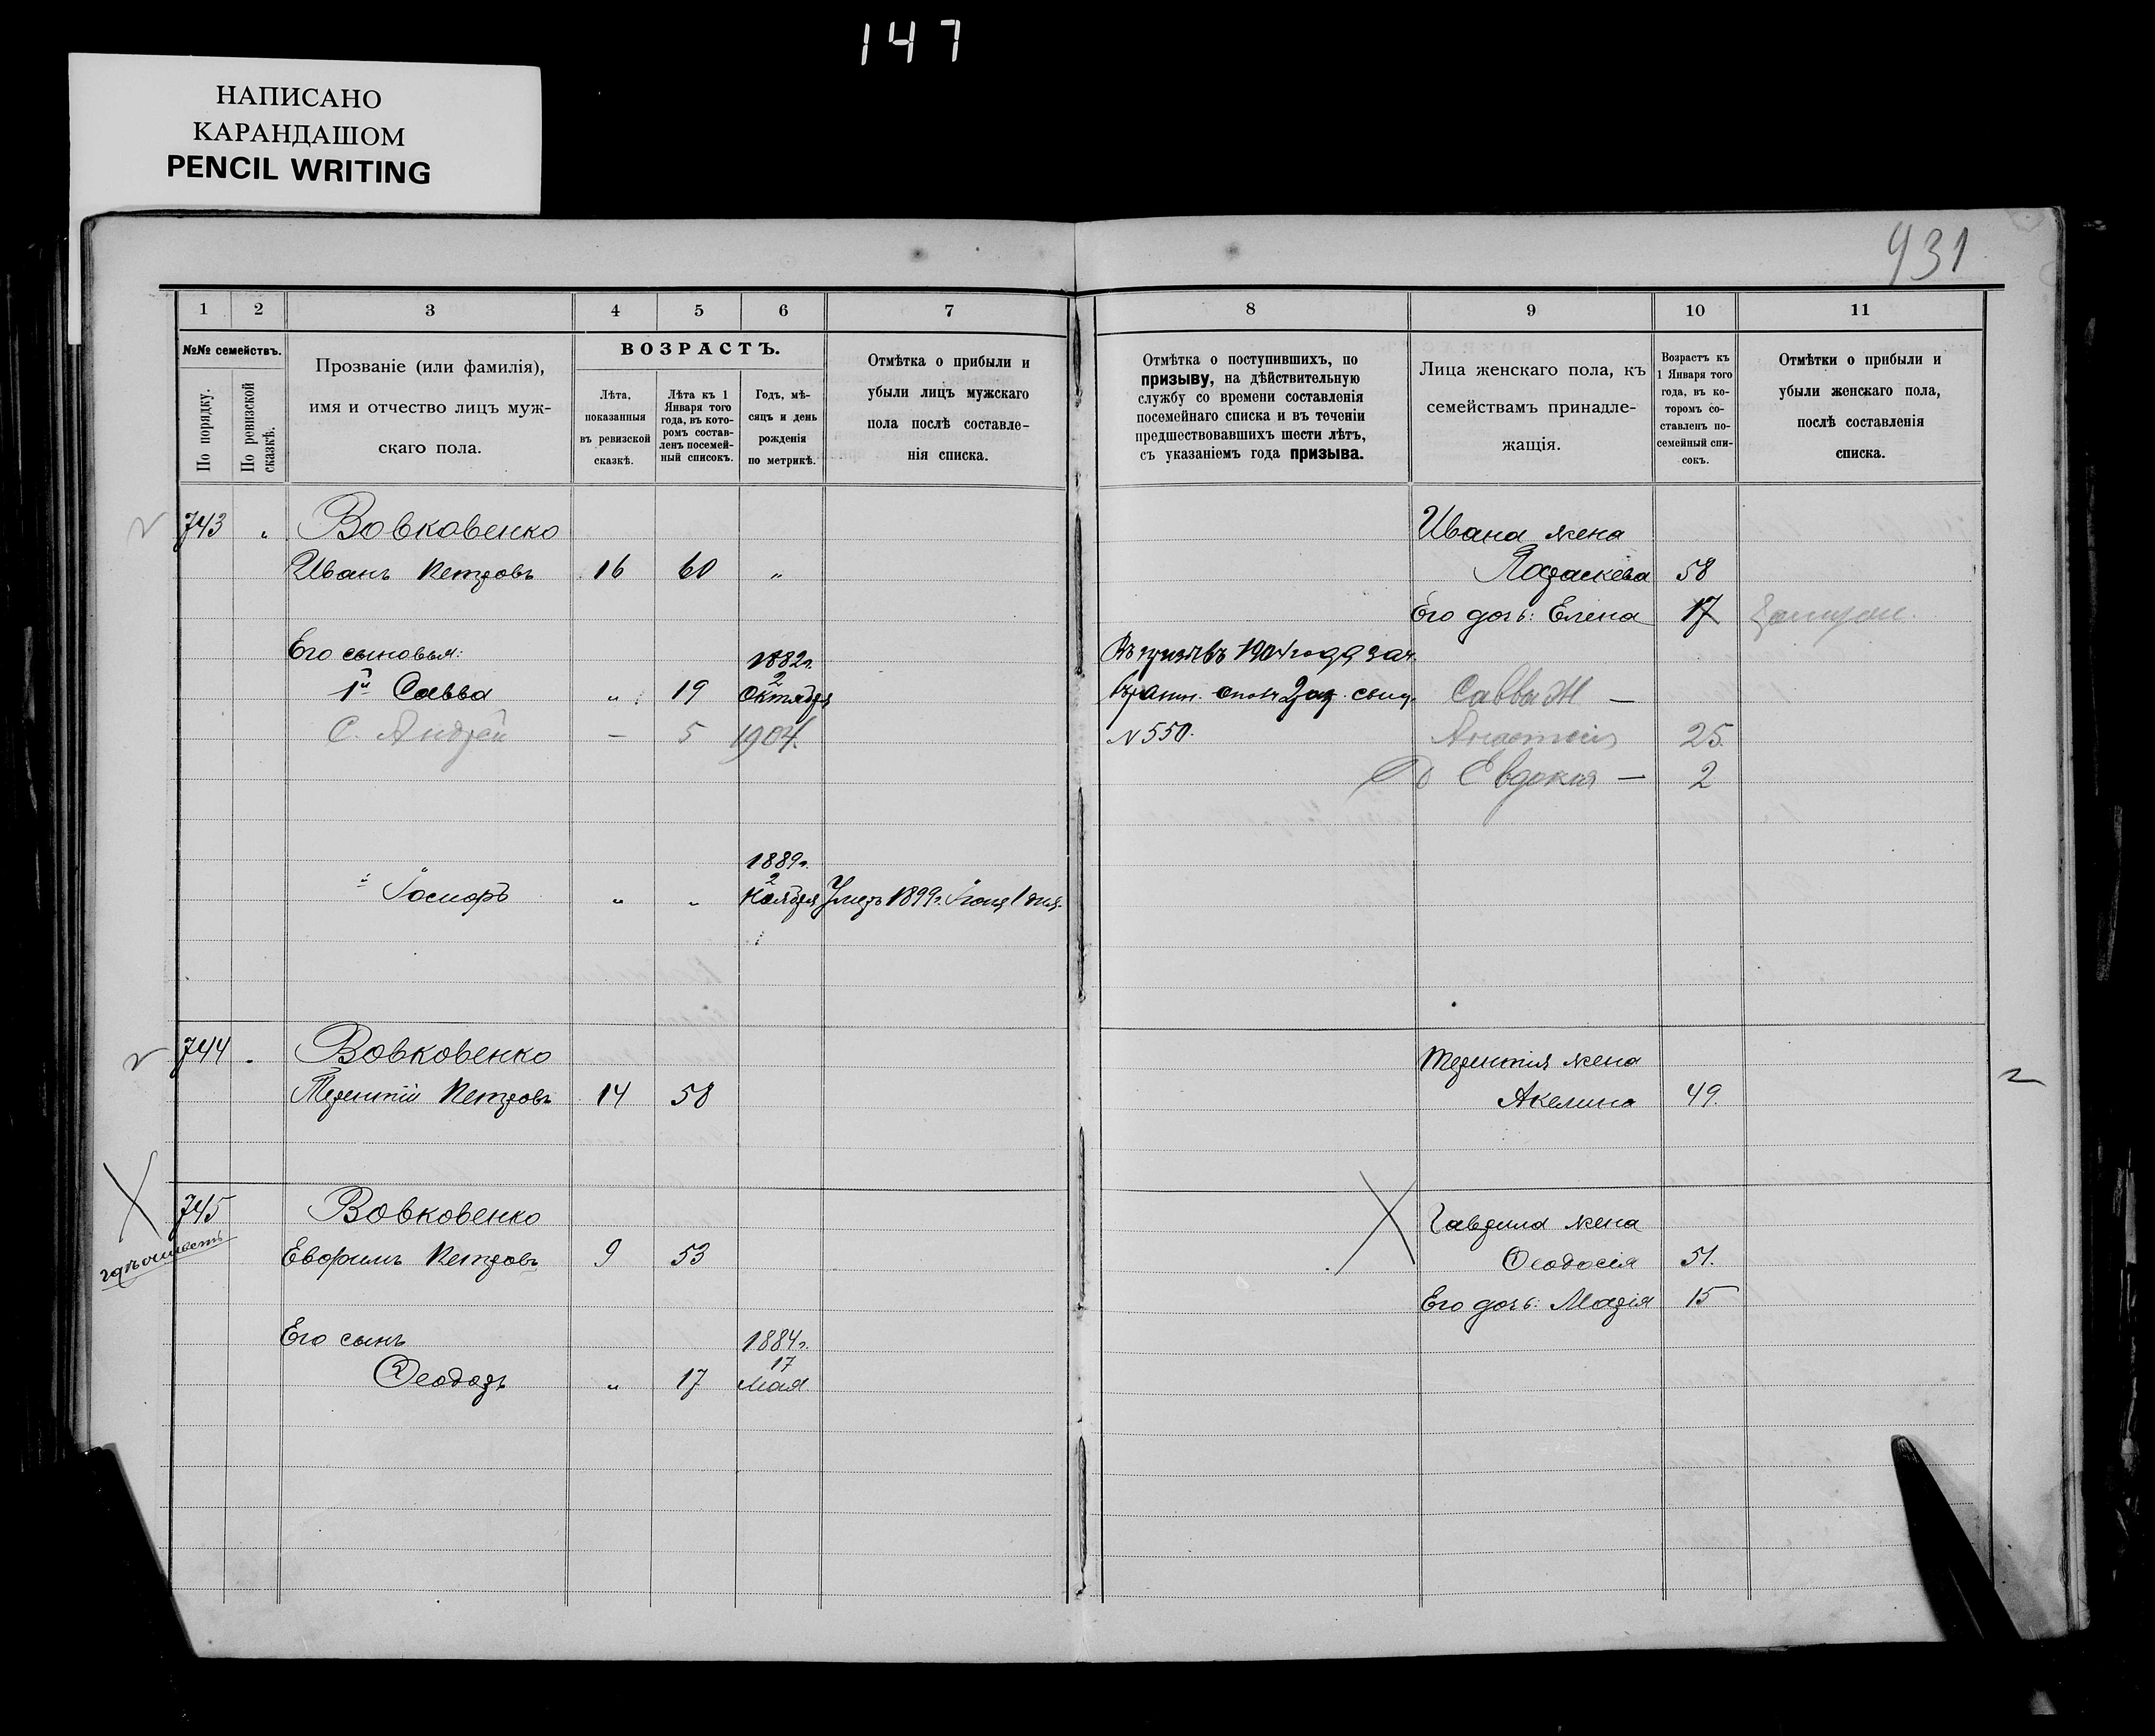 147
НАПИСАНО
КАРАНДАШОМ
PENCIL WRITING
931
1 2 3 4 5 6 7 8 9 10 11
№№ семействъ.
По порядку.
По ревизской сказкѣ.
Прозваніе (или фамилія),
имя и отчество лицъ муж-
скаго пола.
ВОЗРАСТЪ.
Лѣта,
показанныя
въ ревизской
сказкѣ.
Лѣта къ 1
Января того
года, въ кото-
ромъ состав-
ленъ посемей-
ный списокъ.
Годъ, мѣ-
сяцъ и день
рожденія
по метрикѣ.
Отмѣтка о прибыли и
убыли лицъ мужскаго
пола послѣ составле-
нія списка.
Отмѣтка о поступившихъ, по
призыву, на дѣйствительную
службу со времени составленія
посемейнаго списка и въ теченіи
предшествовавшихъ шести лѣтъ,
съ указаніемъ года призыва.
Лица женскаго пола, къ
семействамъ принадле-
жащія.
Возрастъ къ
1 Января того
года, въ ко-
торомъ со-
ставленъ по-
семейный спи-
сокъ.
Отмѣтки о прибыли и
убыли женскаго пола,
послѣ составленія
списка.
743 " Вовковенко Ивана жена
Иванъ Петровъ 16 60 " Параскева 58
Его дочь: Елена 17
Его сыновья: 1882г. Въ призывъ 1904 года зач.
1й Савва " 19 2 Октября Саввы Ж —
С. Андрей — 5 1904. N 550. Анастасія 25.
Д Евдокия — 2
1889г.
Іосифъ " " 2 Ноября Умеръ 1899г. Іюня 1 дня.
744 " Вовковенко Терентія жена
Терентій Петровъ 14 58 Акелина 49.
745 Вовковенко Гаврила жена
Евфимъ Петровъ 9 53 Ѳеодосія 51.
Его дочь: Марія 15
Его сынъ 1884г.
Ѳеодоръ " 17 17 Мая